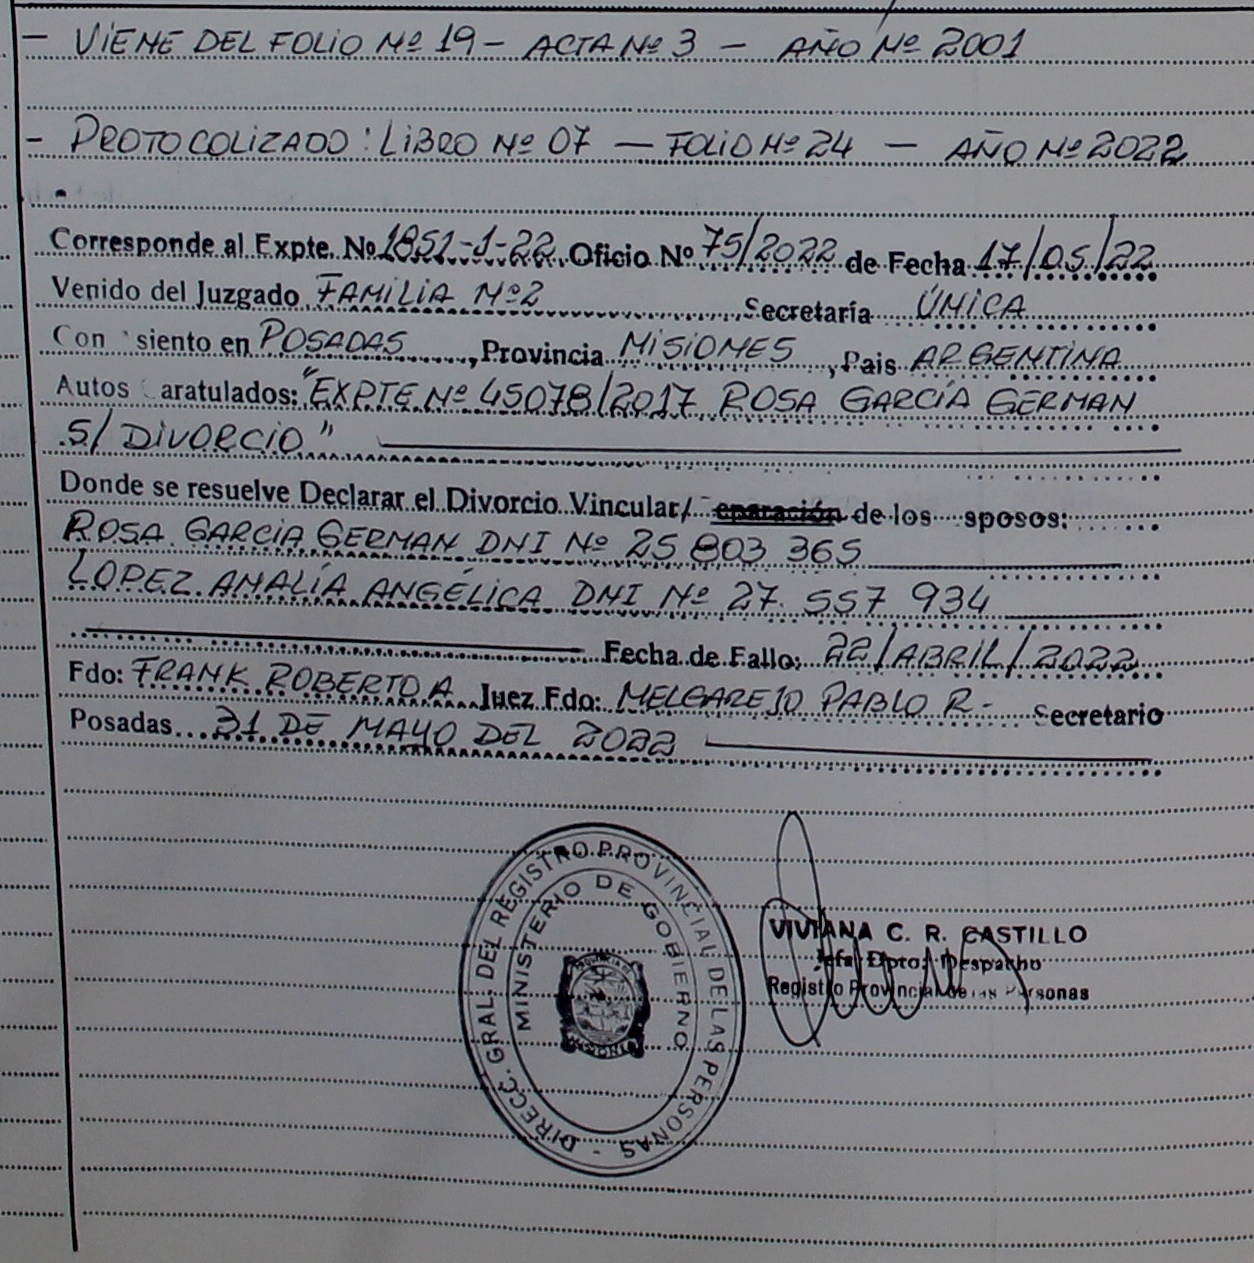 - VIENE DEL FOLIO Nº 19 - ACTA Nº 3 - AÑO Nº 2001
- PROTOCOLIZADO: LIBRO Nº 07 - FOLIO Nº 24 - AÑO Nº 2022
Corresponde al Expte. Nº 1851-1-22 Oficio Nº 75/2022 de Fecha 17/05/22
Venido del Juzgado FAMILIA Nº2 Secretaría ÚNICA
Con siento en POSADAS, Provincia MISIONES, Pais ARGENTINA
Autos aratulados: "EXPTE Nº 45078/2017 ROSA GARCÍA GERMAN
S/ DIVORCIO"
Donde se resuelve Declarar el Divorcio Vincular/ eparación de los sposos:
ROSA GARCIA GERMAN DNI Nº 25 803 365
LOPEZ AMALÍA ANGÉLICA DNI Nº 27.557 934
Fecha de Fallo: 22/ABRIL/2022
Fdo: FRANK ROBERTO A. Juez Fdo: MELGAREJO PABLO R.- Secretario
Posadas 31 DE MAYO DEL 2022
DIRECC. GRAL. DEL REGISTRO PROVINCIAL DE LAS PERSONAS -
MINISTERIO DE GOBIERNO
VIVIANA C. R. CASTILLO
Jefa Dpto. Despacho
Registro Provincial de las Personas